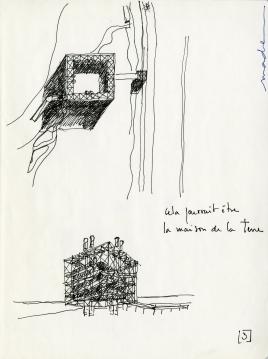 made
cela pourrait être
la maison de la Terre
[5]